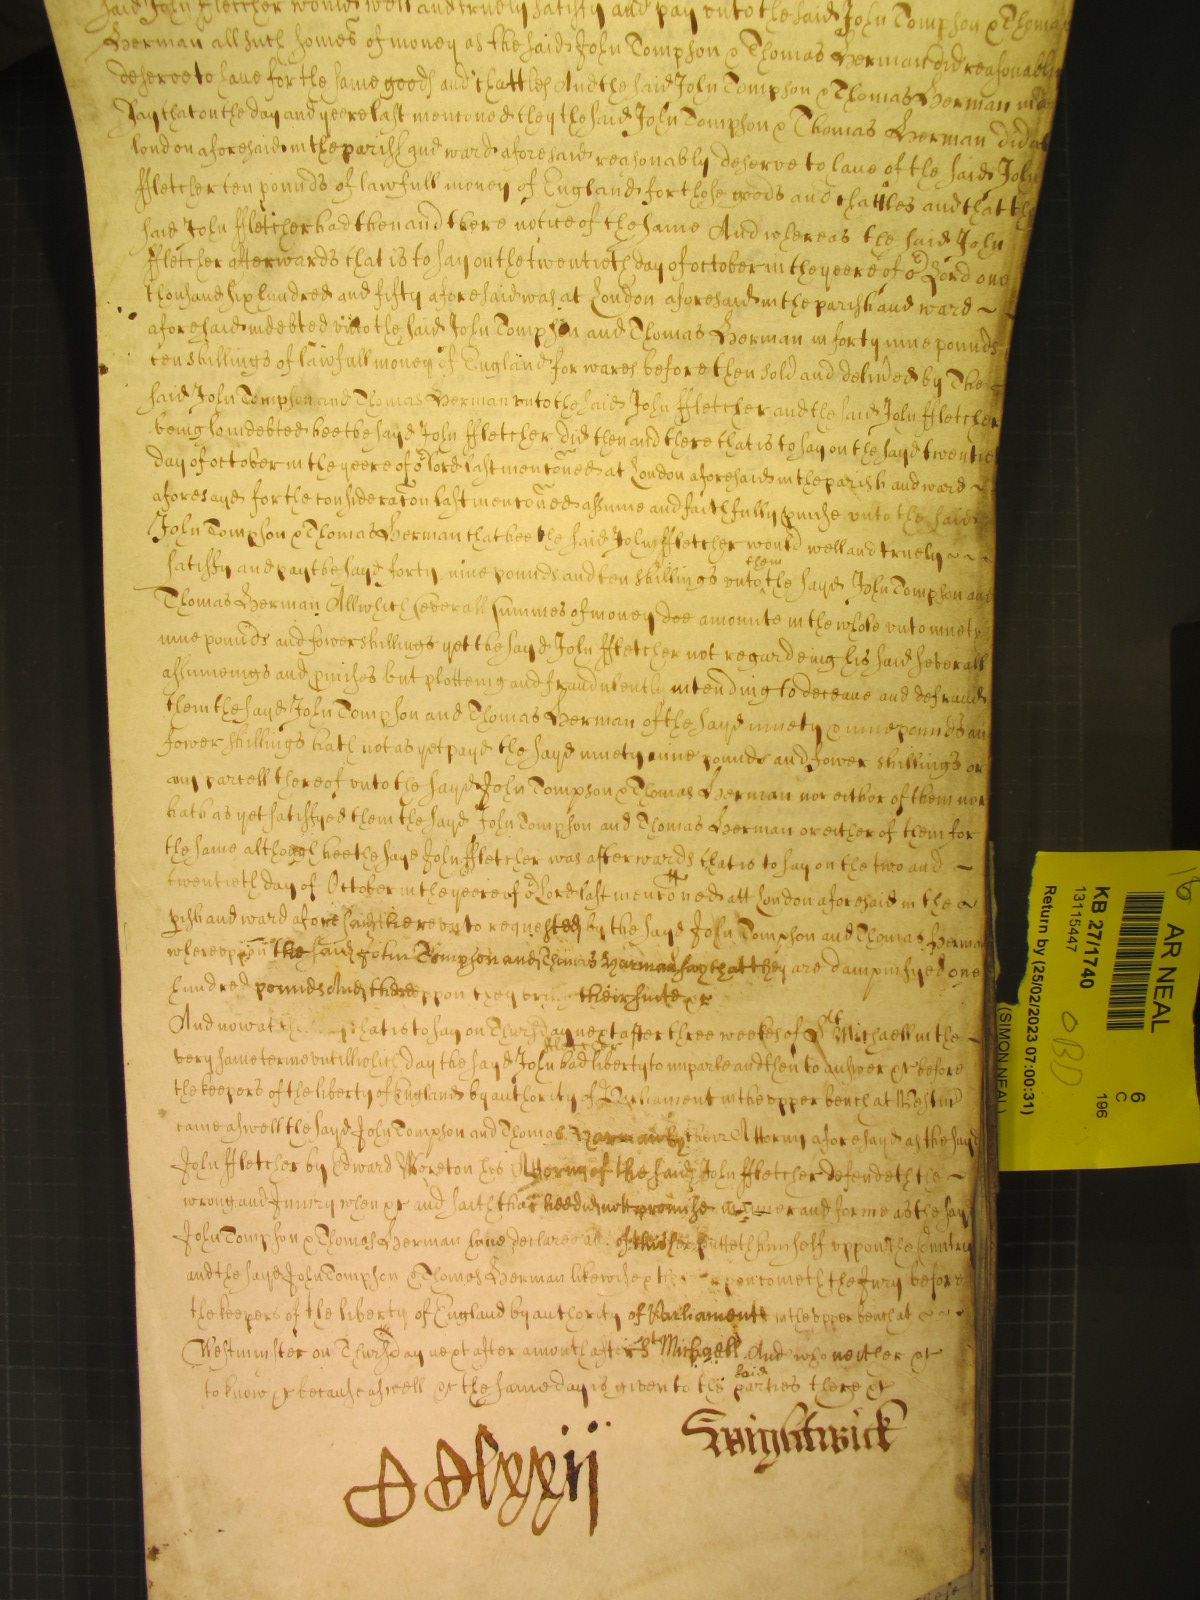 said John Fletcher would well and truely satisfy and pay unto the said John Tompson & Thomas
Herman all such somes of money as the said John Tompson & Thomas Herman did reasonably
deserve to have for the same goods and chattles And the said John Tompson & Thomas Herman
say that on the day and yeere last mentoned they the said John Tompson & Thomas Herman did at
london aforesaid in the parish and ward aforesaid reasonably deserve to have of the said John
ffletcher ten pounds of lawfull money of England for those goods and chattles and that the
said John ffletcher had then and there notice of the same And whereas the said John
ffletcher afterwards that is to say on the twentieth day of october in the yeere of or Lord one
thousand six hundred and fifty aforesaid was at London aforesaid in the parish and ward ~
aforesaid indebted unto the said John Tompson and Thomas Herman in forty nine pounds
ten shillings of lawfull money of England for wares before then sold and delivered by the
said John Tompson and Thomas Herman unto the said John ffletcher and the said John ffletcher
being so indebted hee the sayd John ffletcher did then and there that is to say on the sayd twentieth
day of october in the yeere of or lord last mentoned at London aforesaid in the parish and ward ~
aforesayd for the consideraton last mentoned assume and faithfully pmise unto the said
John Tompson & Thomas Herman that hee the said John ffletcher would well and truely ~ ~ ~
satisfy and pay the sayd forty nine pounds and ten shillings unto them the sayd John Tompson and
Thomas Herman All which severall summes of money doe amounte in the whole unto ninety
nine pounds and fower shillings yet the sayd John ffletcher not regardeing his said severall
assumeings and pmises but plotteing and fraudulently intending to deceave and defraud
them the sayd John Tompson and Thomas Herman of the sayd ninety & nine pounds an
fower shillings hath not as yet payd the sayd ninety nine pounds and fower shillings or
any parcell thereof unto the sayd John Tompson & Thomas Herman nor either of them nor
hath as yet satisfyed them the sayd John Tompson and Thomas Herman or either of them for
the same although hee the sayd John ffletcher was afterwards that is to say on the two and ~
twentieth day of October in the yeere of or Lord last mentoned att london aforesaid in the ~
pish and ward aforesaid thereunto requested by the sayd John Tompson and Thomas Herman
whereuppon the said John Tompson and Thomas Herman say that they are dampnifyed one
hundred pounds And thereuppon they bring their suite &c
And now at that is to say on Thursday next after three weekes of St Michaell in the ~
very same terme untill which day the sayd John ffletcher had liberty to imparle and then to answer &c before
the keepers of the liberty of England by authority of Parliament in the upper bench at Westmr
came aswell the sayd John Tompson and Thomas Herman by their Attorny aforesayd as the sayd
John ffletcher by Edward Moreton his Attorny of the said John ffletcher defendeth the ~
wrong and Injury when &c and saith that hee did not promise in manner and forme as the sayd
John Tompson & Thomas Herman have declared putteth himself uppon the Countrey
and the sayd John Tompson & Thomas Herman likewise &c cometh the Jury before
the keepers of the liberty of England by authority of Parliament in the upper bench at ~ ~ ~
Westminster on Thursday next after a month after St Michaell And who neither &c
to know &c because aswell &c the same day is given to the said parties there &c
CClxxij Swightwick
AR NEAL
KB 27/1740
13115447
Return by (25/02/2023 07:00:31)
(SIMON NEAL)
6
C
196
18